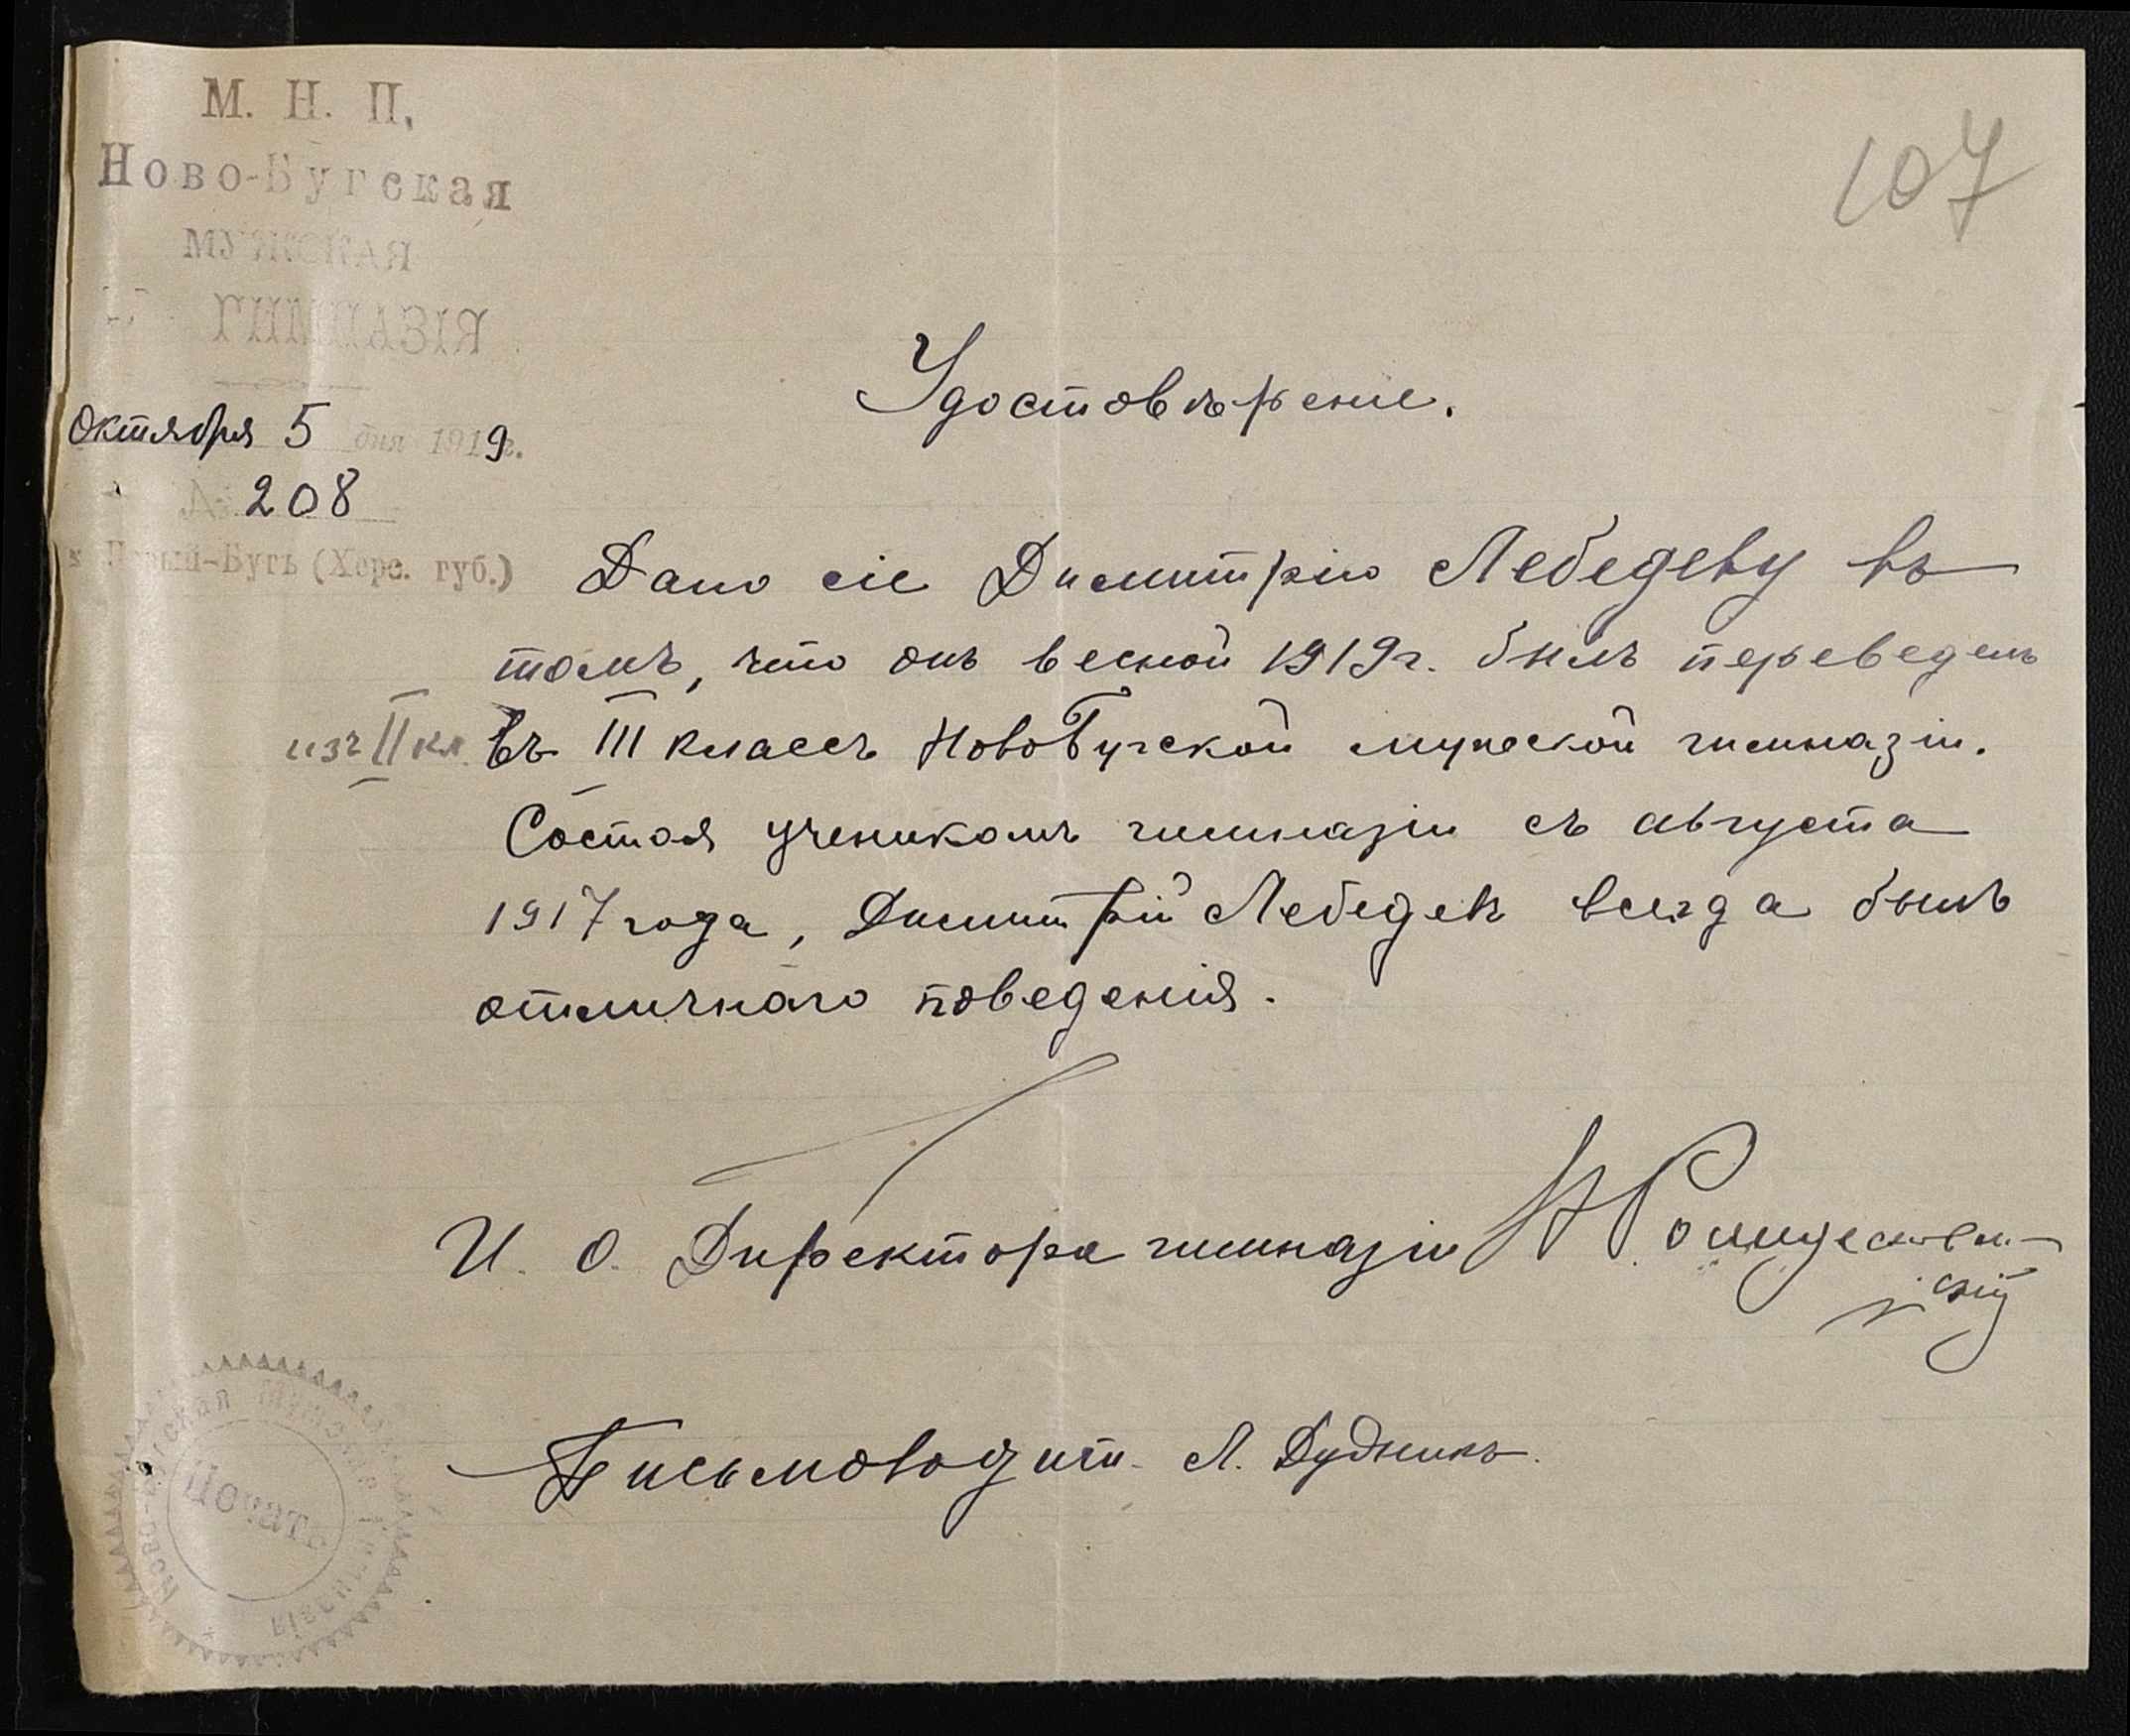 М. Н. П.
Ново-Бугская
МУЖСКАЯ
ГИМНАЗІЯ
Октября 5 дня 1919 г.
№ 208
Новый-Бугъ (Херс. губ.)
107
Удостовѣреніе.
Дано сіе Димитрію Лебедеву въ
томъ, что онъ весной 1919 г. былъ переведенъ
изъ II кл. въ III классъ НовоБугской мужской гимназіи.
Состоя ученикомъ гимназіи съ августа
1917 года, Димитрій Лебедевъ всегда былъ
отличнаго поведенія.
И. О. Директора гимназіи Н Рождествен-
скій
Письмоводит. Л. Дудникъ.
Ново-Бугская Мужская Гимназія
Печать